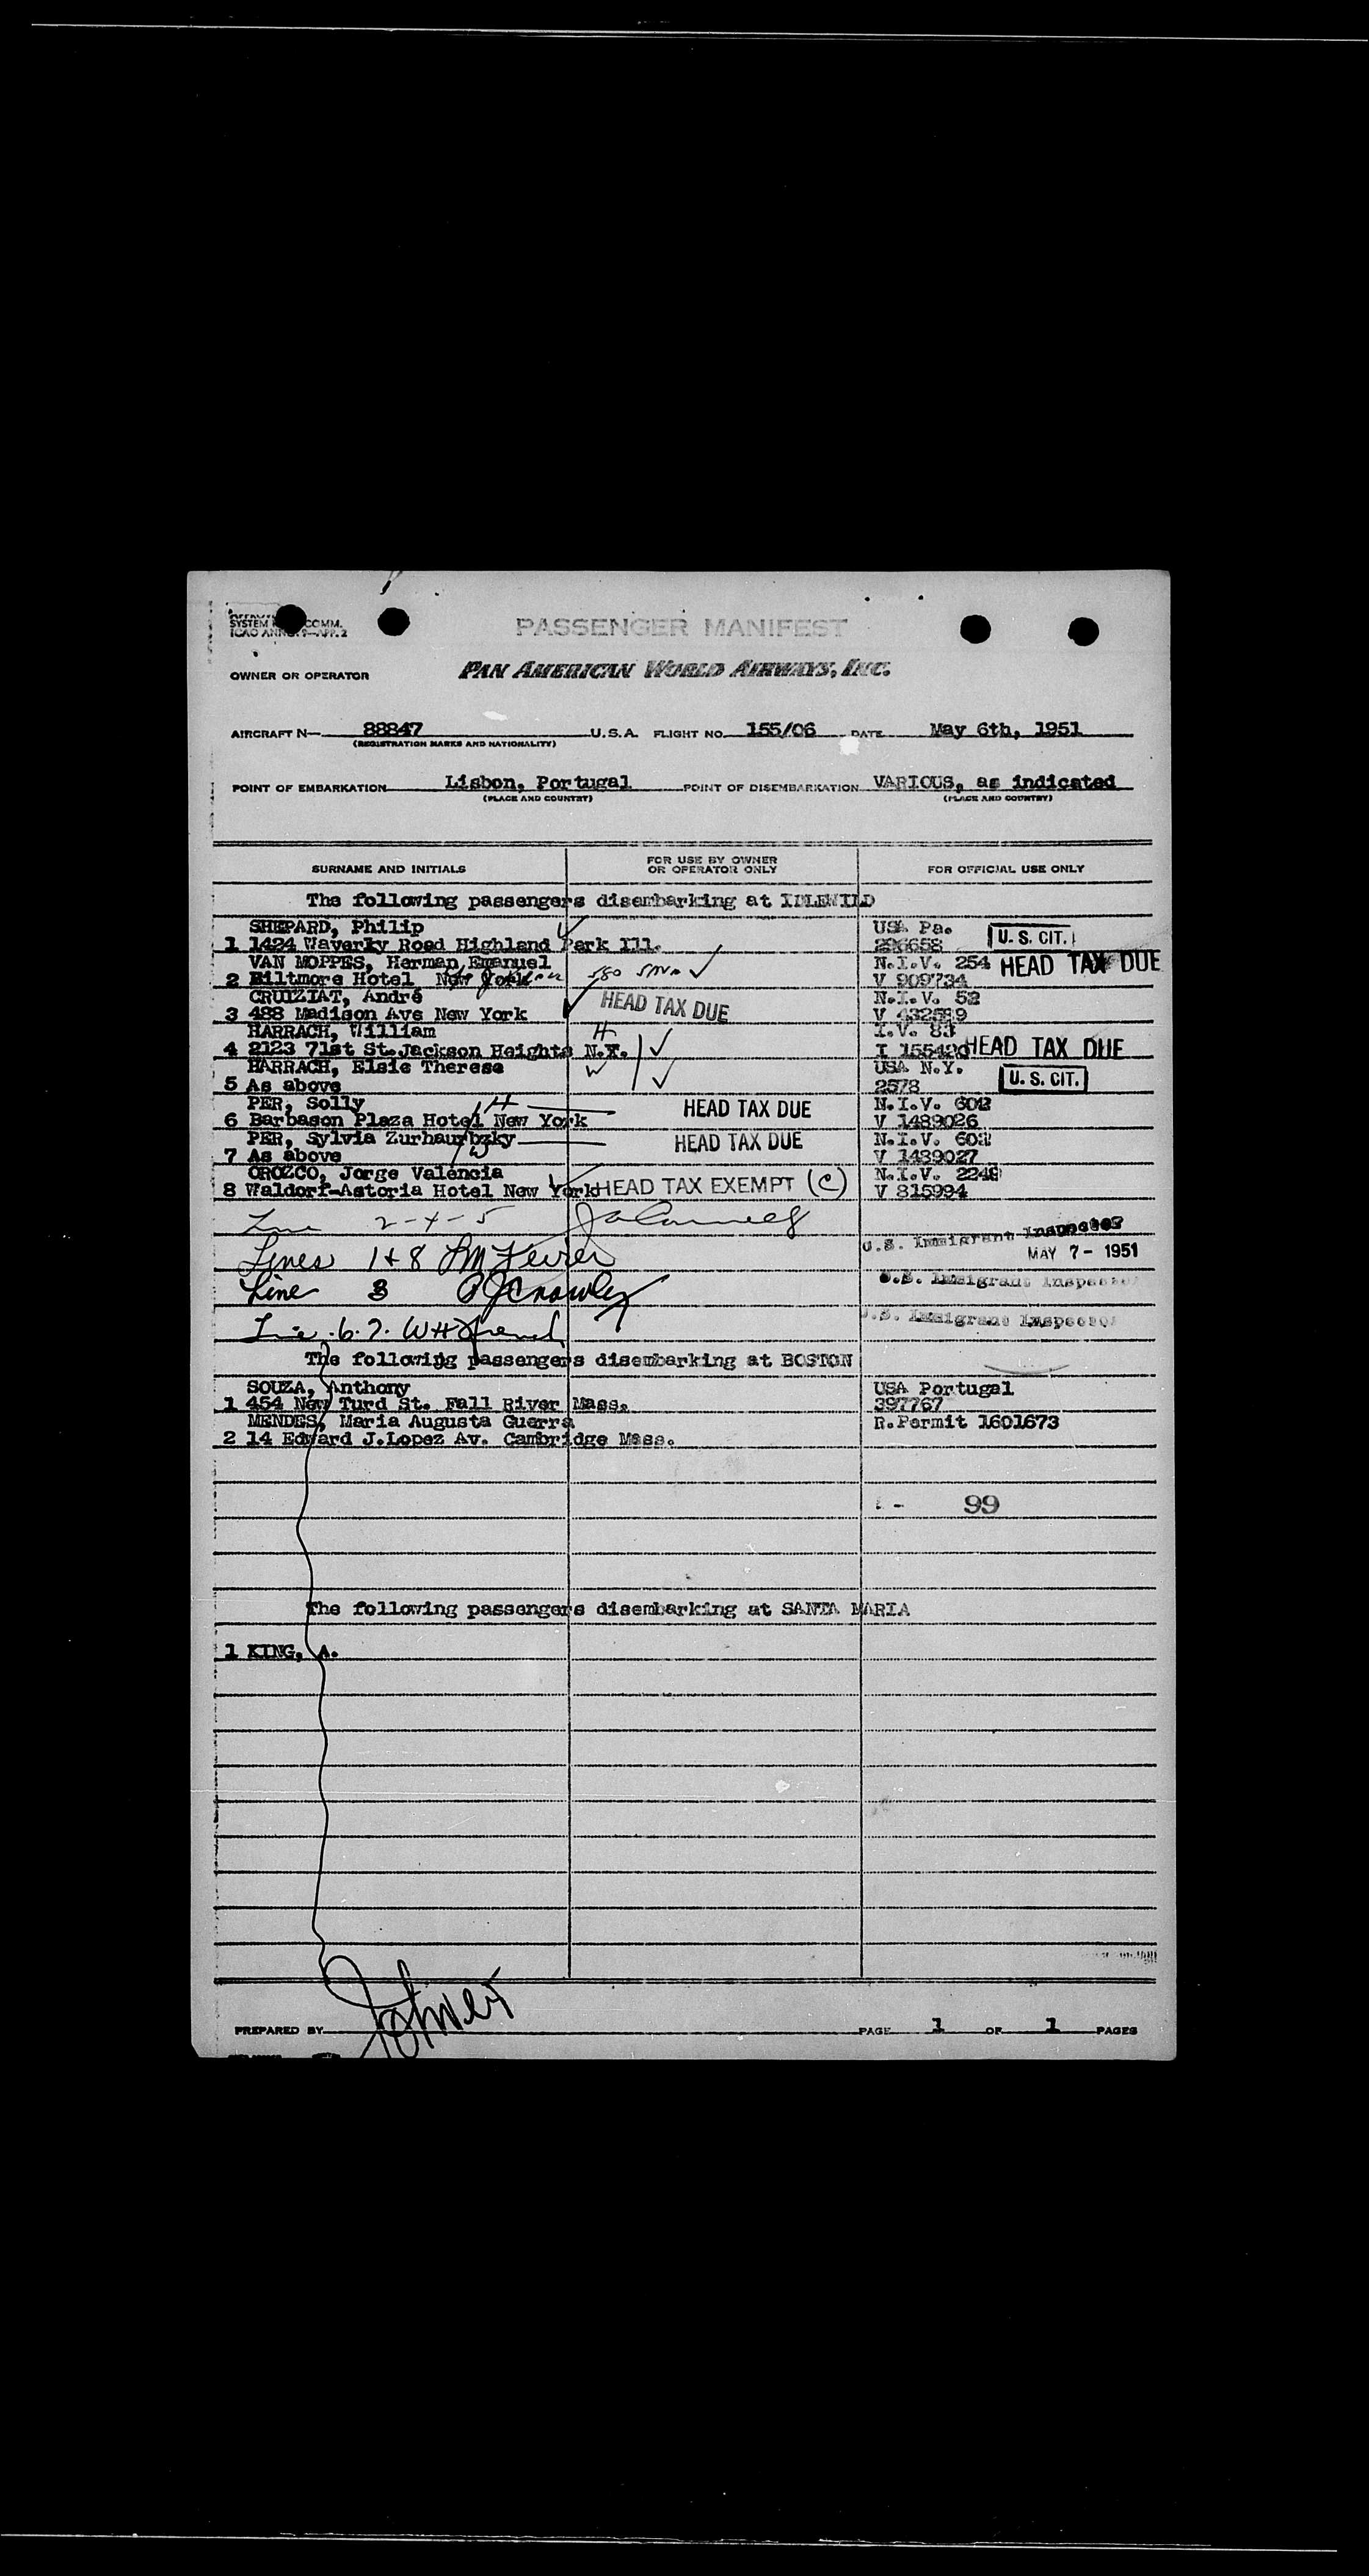 SYSTEM COMM.
ICAO ANNEX 9—APP. 2
PASSENGER MANIFEST
OWNER OR OPERATOR PAN AMERICAN WORLD AIRWAYS, INC.
AIRCRAFT N— 88847 U.S.A. FLIGHT NO. 155/06 DATE May 6th, 1951
(REGISTRATION MARKS AND NATIONALITY)
POINT OF EMBARKATION Lisbon, Portugal POINT OF DISEMBARKATION VARIOUS, as indicated
(PLACE AND COUNTRY) (PLACE AND COUNTRY)
SURNAME AND INITIALS FOR USE BY OWNER OR OPERATOR ONLY FOR OFFICIAL USE ONLY
The following passengers disembarking at IDLEWILD
SHEPARD, Philip USA Pa.
1 1424 Waverky Road Highland Park Ill. U. S. CIT.
VAN MOPPES, Herman Emanuel N.I.V. 254 HEAD TAX DUE
2 Biltmore Hotel New York 580 V 909734
CRUIZIAT, André HEAD TAX DUE N.I.V. 52
3 488 Madison Ave New York V
HARRACH, William H I.V. 83
4 2123 71st St. Jackson Heights N.Y. I HEAD TAX DUE
HARRACH, Elsie Therese W USA N.Y.
5 As above 2578 U. S. CIT.
PER, Solly H HEAD TAX DUE N.I.V.
6 Barbason Plaza Hotel New York V 1489026
PER, Sylvia W HEAD TAX DUE N.I.V.
7 As above V 1489027
OROZCO, Jorge Valencia N.I.V.
8 Waldorf-Astoria Hotel New York HEAD TAX EXEMPT (C) V 815994
Line 2-4-5 U.S. Immigrant Inspector
Lines 1+8 MAY 7 - 1951
Line 3 P J Crowley U.S. Immigrant Inspector
Line 6.7. U.S. Immigrant Inspector
The following passengers disembarking at BOSTON
SOUZA, Anthony USA Portugal
1 454 New Turd St. Fall River Mass. 397767
MENDES, Maria Augusta Guerra R.Permit 1601673
2 14 Edward J.Lopez Av. Cambridge Mass.
99
The following passengers disembarking at SANTA MARIA
1 KING, A.
PREPARED BY PAGE 1 OF 1 PAGES